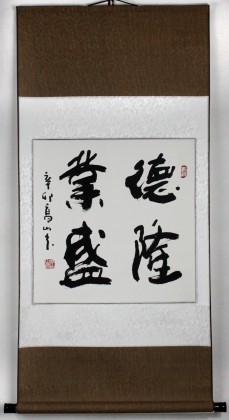 德隆
業盛
辛卯高山